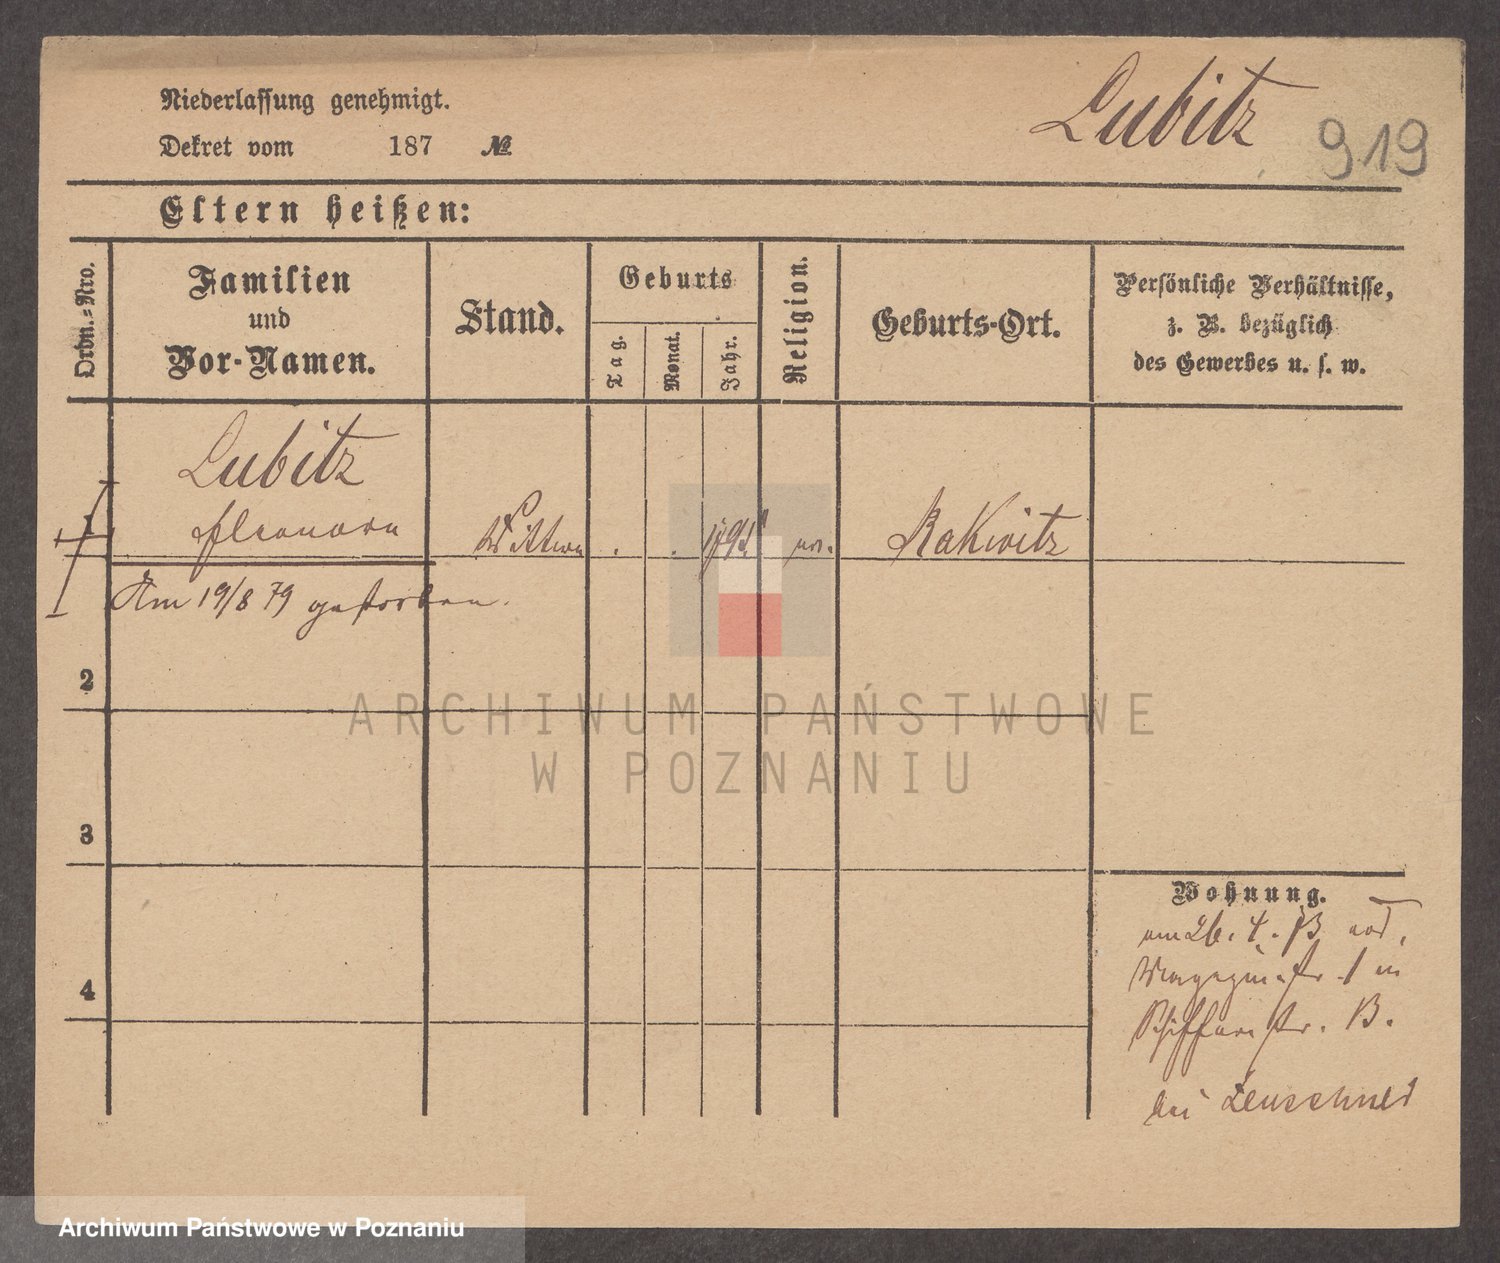 Niederlassung genehmigt.
Dekret vom 187 №
Lubitz
919
Eltern heißen:
Ordn.=Nro.
Familien
und
Vor-Namen.
Stand.
Geburts
Tag.
Monat.
Jahr.
Religion.
Geburts-Ort.
Persönliche Verhältnisse,
z. B. bezüglich
des Gewerbes u. s. w.
Lubitz
Eleonora
Wittwe
Rakwitz
Am 19/8 79 gestorben.
2
3
4
Wohnung.
Magazinstr. 1 in
Schifferstr. B.
bei Leuschner
ARCHIWUM PAŃSTWOWE
W POZNANIU
Archiwum Państwowe w Poznaniu